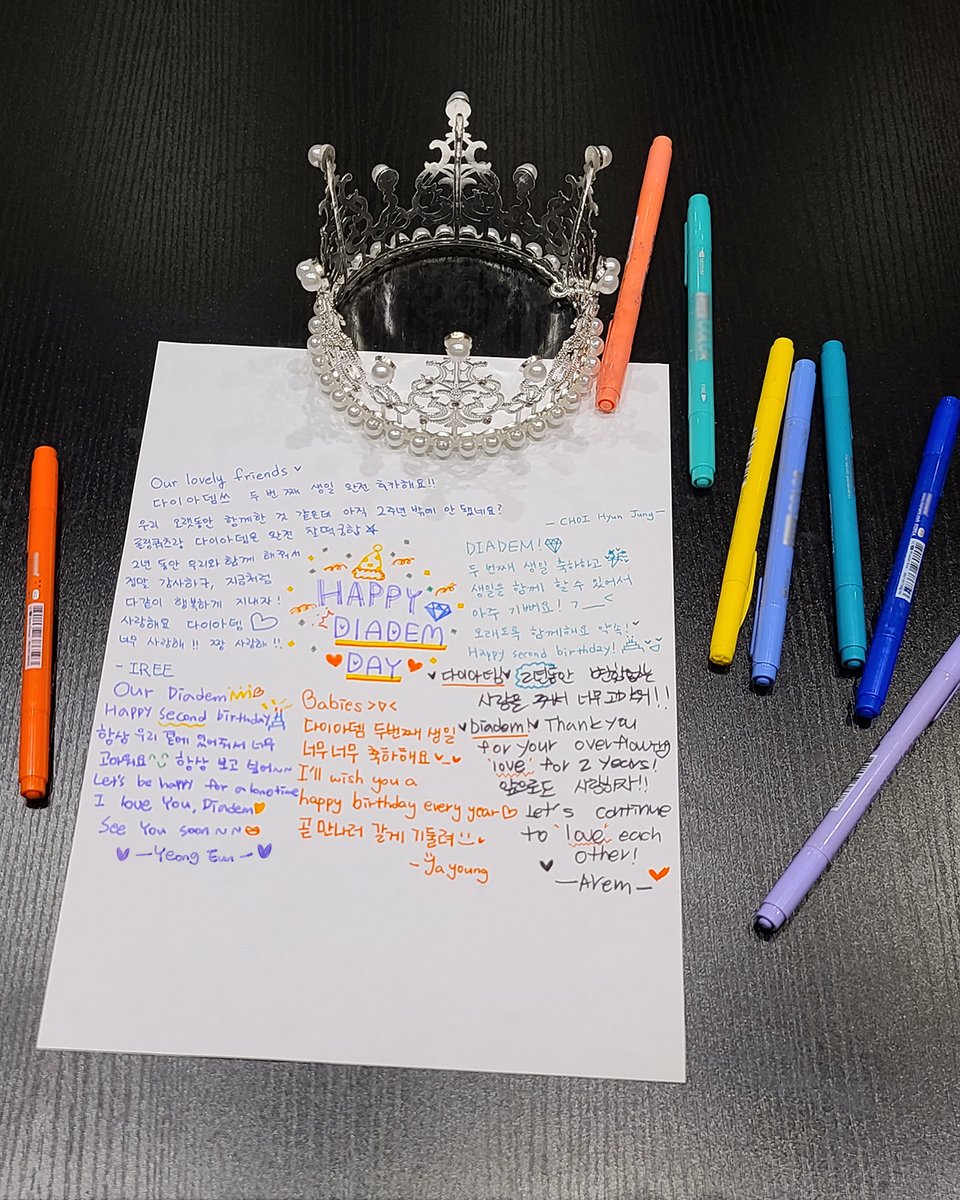 Our lovely friends
다이아뎀쓰 두 번째 생일 완전 추카해요!!
우리 오랫동안 함께한 것 같은데 아직 2주년 밖에 안 됐네요?
다이아뎀은 완전 찰떡궁합
2년 동안 우리와 함께 해줘서
정말 감사하구, 지금처럼
다같이 행복하게 지내자!
사랑해요 다이아뎀
너무 사랑해!! 짱 사랑해!!
- IREE
HAPPY
DIADEM
DAY
- CHOI Hyun Jung -
DIADEM!
두 번째 생일 축하하고
생일을 함께 할 수 있어서
아주 기뻐요! >__<
오래도록 함께해요 약속!
Happy second birthday!
Our Diadem
Happy second birthday
항상 우리 곁에 있어줘서 너무
고마워요^^ 항상 보고 싶어~~
Let's be happy for a long time
I love You, Diadem
See You soon~~
- Yeong Eun -
Babies >▽<
다이아뎀 두번째 생일
너무너무 축하해요
I'll wish you a
happy birthday every year
곧 만나러 갈게 기둘려
- Ja young
다이아뎀 2년동안 변함없는
사랑을 줘서 너무 고마워!!
Diadem! Thank you
for your overflowing
'love' for 2 years!
앞으로도 사랑하자!!
Let's continue
to 'love' each
other!
- Arem -
COLOR
FINE